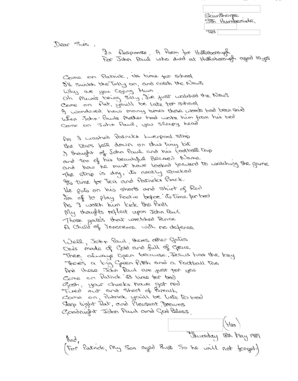 Scunthorpe,
Sth Humberside,
Dear Sirs,
In Response, A Poem for Hillsborough
For John Paul who died at Hillsborough aged 10 yrs
Come on Patrick, its time for school
I'll switch the Telly on, and catch the News
Why are you Crying Mum
Oh Mum's being Silly, I've just watched the News
Come on Pat, you'll be late for school
I wondered how many times those words had been said
When John-Pauls Mother had woke him from his bed
Come on John Paul, you sleepy head
As I washed Patricks Liverpool strip
The tears fell down on this tiny kit
I thought of John Paul and his football
and of his beautiful Name
and how he must have looked forward to watching the game
The strip is dry, its neatly stacked
Its time for Tea and Patricks Back
He puts on his shorts and shirt of Red
I'm off to play Footie before its time for bed
As I watch him kick the Ball
My thoughts reflect upon John Paul
Those gates that
A Child of Innocence with no defence
Well, John Paul theres other Gates
One made of Gold and full of
These always open because Jesus has the key
Theres a big Green Pitch and a football too
And these John Paul are just for you
Come on Patrick its time for bed
Gosh, your cheeks have got red
Tired out and short of breath,
Come on, Patrick you'll be late to bed
Sleep tight Pat, and Pleasant Dreams
Goodnight John Paul and God Bless
(Mrs)
Thursday May 1989
(For Patrick, My Son aged 8 yrs. So he will not forget)